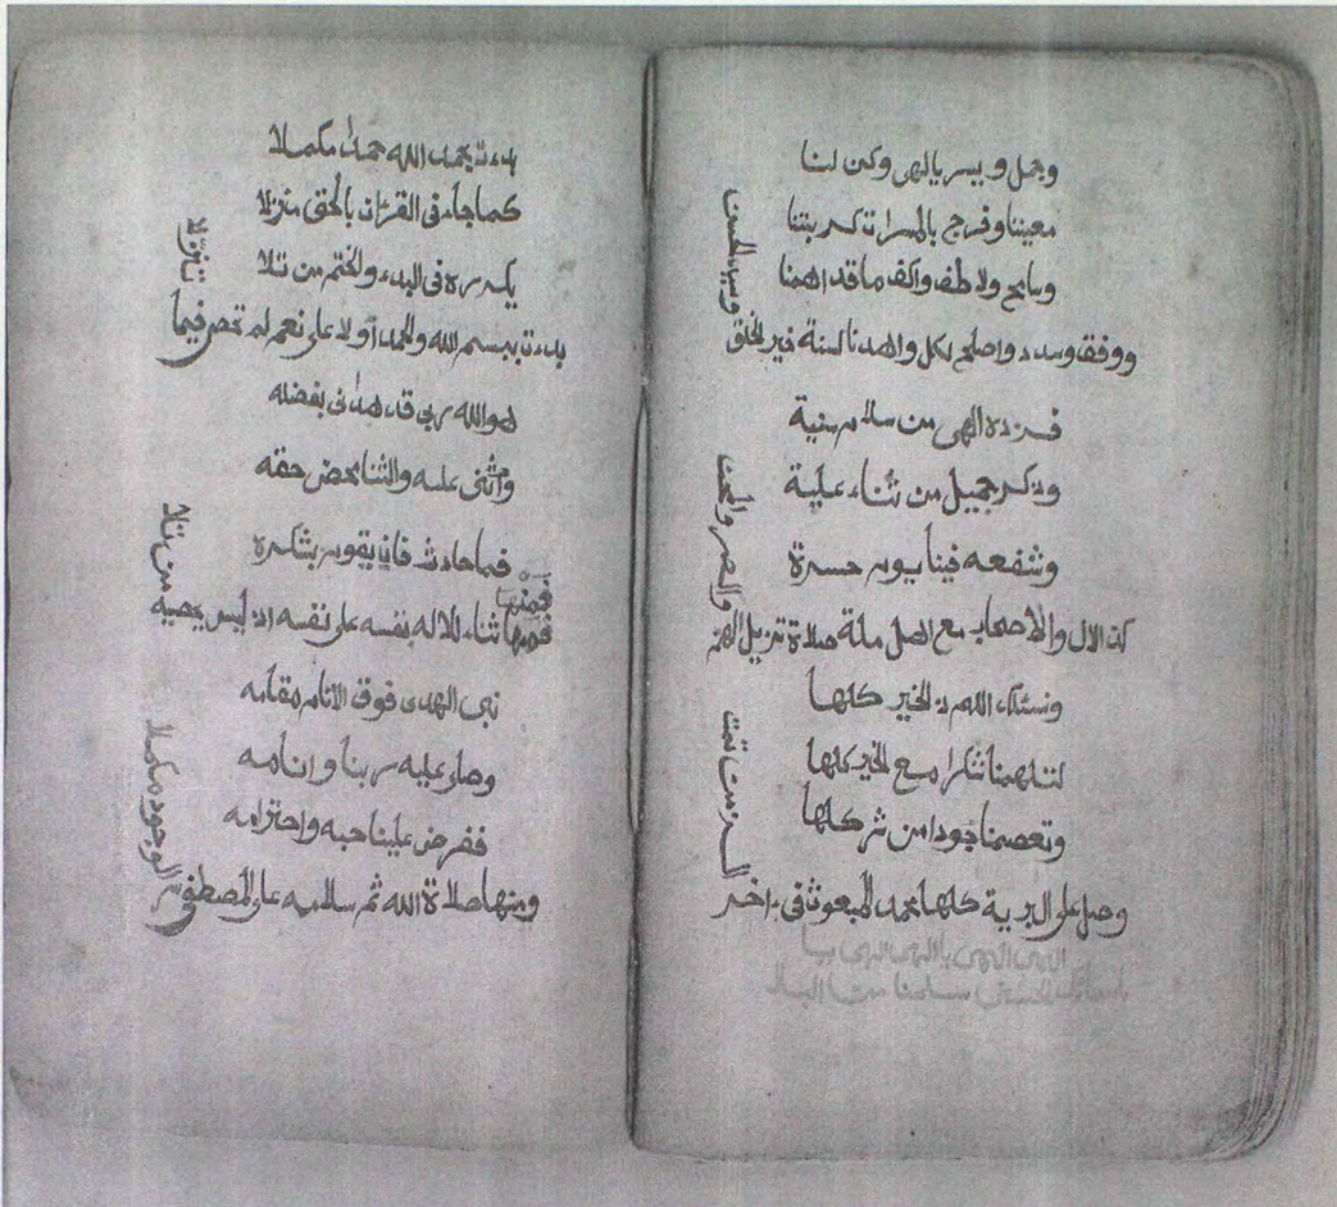 وجمل ويسر يالهي وكن لنا
معيننا وفرج بالمسرات كربتنا
وسامح ولاطف واكف ما قد اهمنا
ووفق وسدد واصلح لكل واهدنا لسنة خير الخلق
وسيد الحسن
فزده الهي من سلام سنية
وذكر جميل من ثناء علية
وشفعه فينا يوم حسرة
كذا الال والاصحاب مع اهل ملة صلاة تزيل الهم
والصر والحن
ونسئلك اللهم ذ الخير كلها
لتلهمنا شكرا مع الخير كلها
وتعصمنا جودا من شر كلها
وصل على البرية كلها محمد المبعوث في ءاخر
الزمن تمت
بدءت بحمد الله حمدا مكملا
كما جاء في القرءان بالحق منزلا
يكرره في البدء والختم من تلا
بدءت ببسم الله والحمد أولا على نعم لم تحص فيما
تنزلا
هو الله ربي قد هداني بفضله
واثني عليه والثنا محض حقه
فما حادث فان يقوم بشكره
فمنها
فمنها ثناء للاله بنفسه على نفسه اذ ليس يحصيه
من تلا
نبي الهدى فوق الانام مقامه
وصلى عليه ربنا وانامه
ففرض علينا حبه واحترامه
ومنها صلاة الله ثم سلامه على المصطفى سر
الوجود مكملا